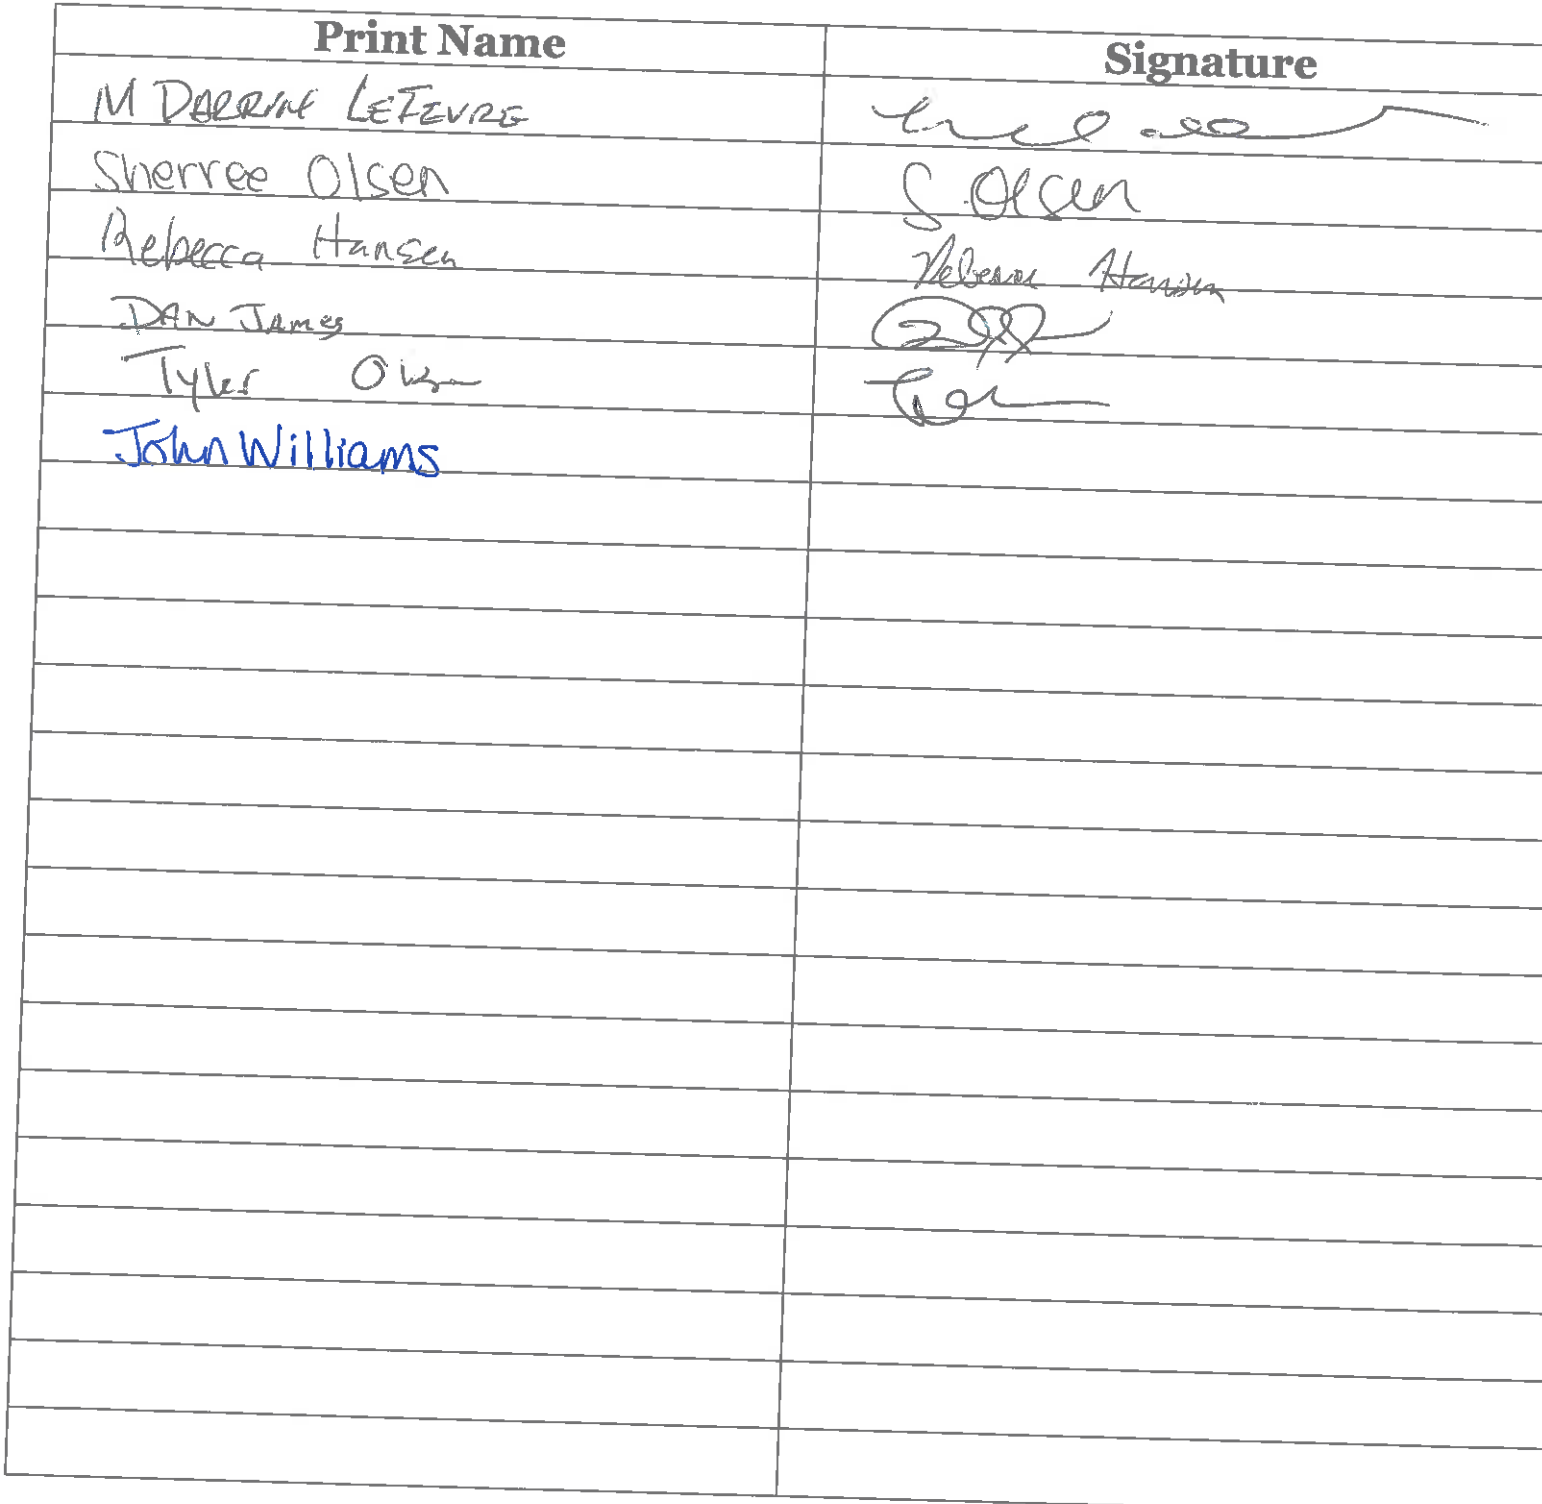 Print Name Signature
M DARRIN LEFEVRE
Sherree Olsen S. Olsen
Rebecca Hansen Rebecca Hansen
DAN JAMES
Tyler Olsen
John Williams